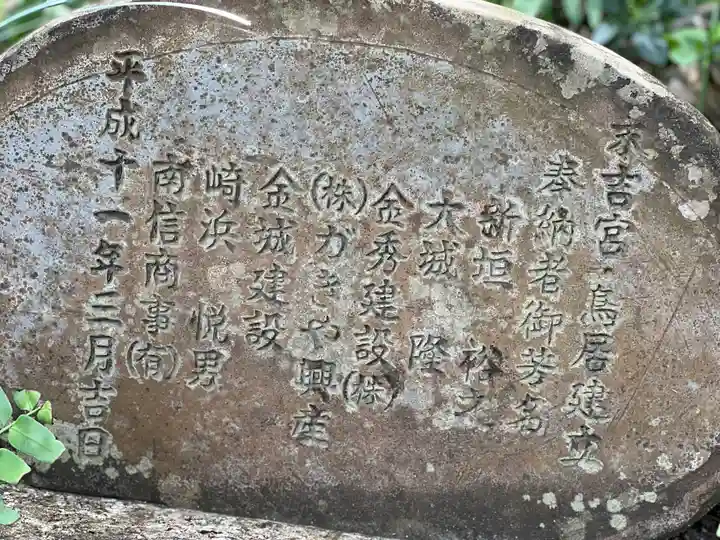 末吉宮・鳥居建立
奉納者御芳名
新垣 裕之
大城 隆
金秀建設(株)
(株)ガきや興産
金城建設
崎浜 悦男
南信商事(有)
平成十一年三月吉日